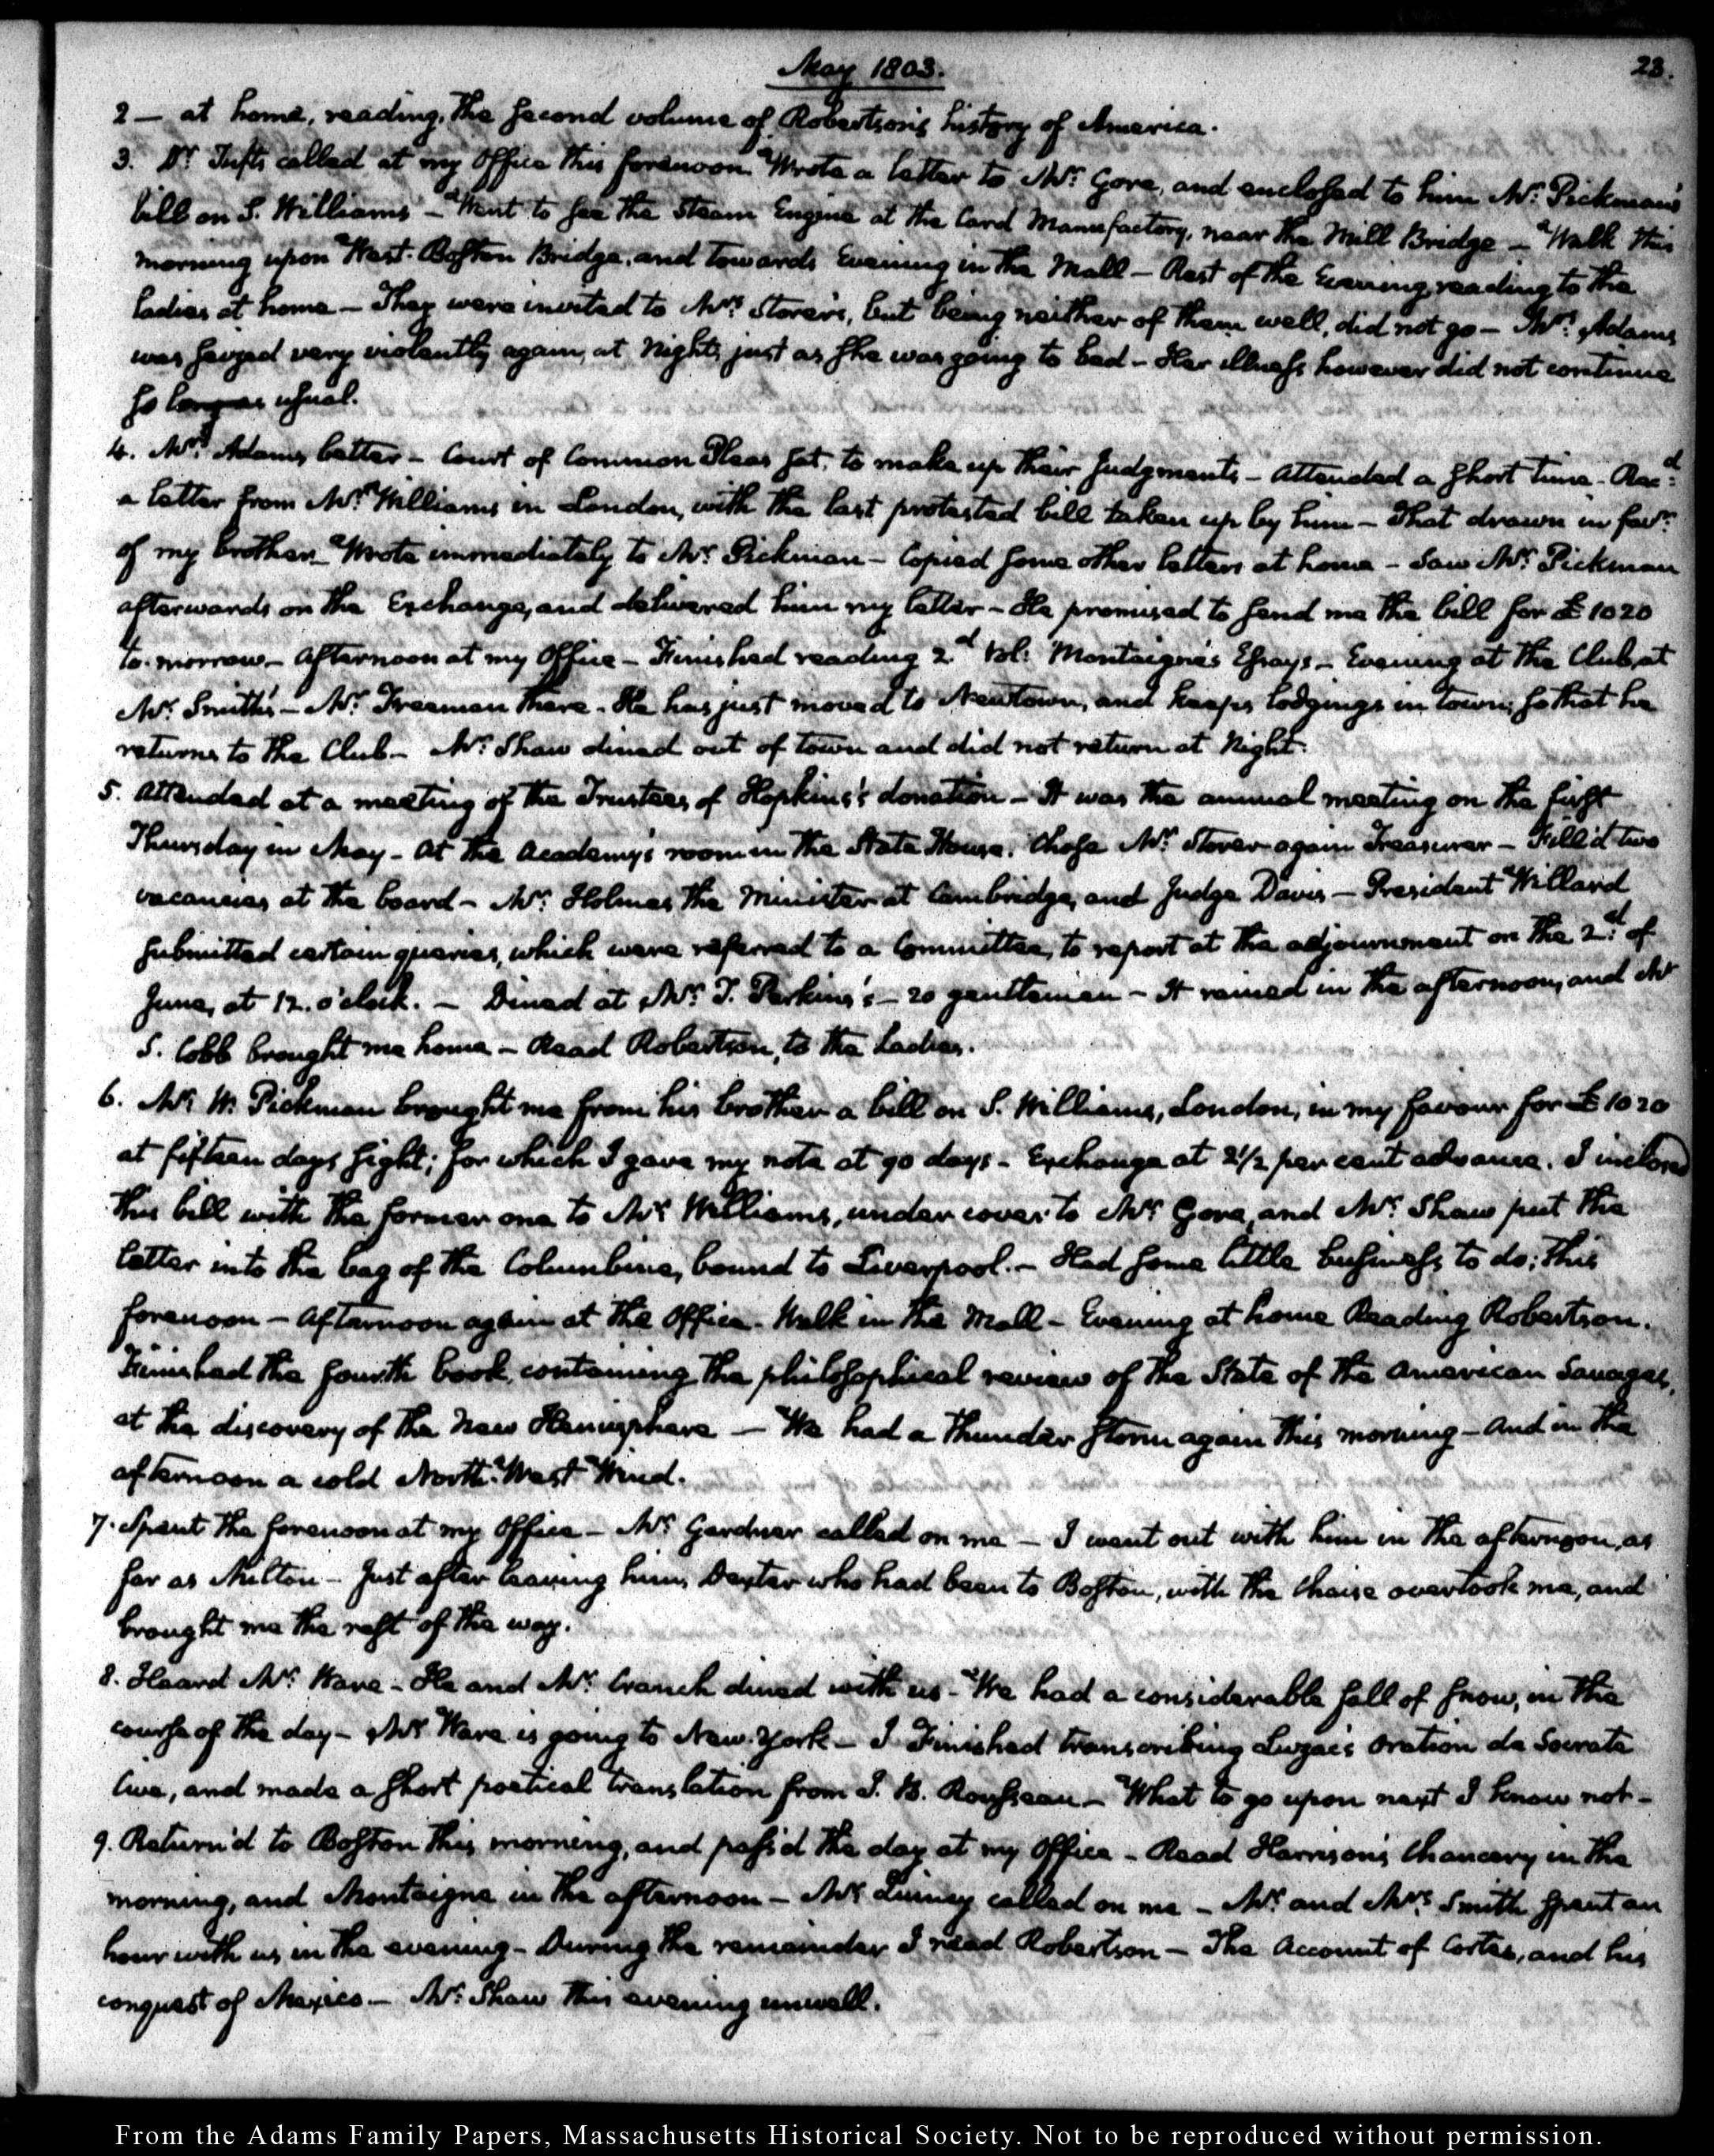 May 1803.
23.
2 — at home, reading, the second volume of Robertson's history of America.
3. Dr Tufts called at my Office this forenoon. Wrote a letter to Mr. Gore, and enclosed to him Mr. Pickman's
bill on S. Williams — Went to see the Steam Engine at the Card Manufactory, near the Mill Bridge — Walk this
morning upon West-Boston Bridge, and towards Evening in the Mall — Rest of the Evening, reading to the
ladies at home — They were invited to Mrs Storer's, but being neither of them well, did not go — Mrs. Adams
was seized very violently again, at Night, just as she was going to bed — Her illness however did not continue
so long as usual.
4. Mrs. Adams better — Court of Common Pleas sat, to make up their Judgments — Attended a short time — Recd:
a letter from Mr. Williams in London, with the last protested bill taken up by him — That drawn in favr:
of my brother — Wrote immediately to Mr. Pickman — Copied some other letters at home — Saw Mr. Pickman
afterwards on the Exchange, and delivered him my letter — He promised to send me the bill for £1020
to-morrow — Afternoon at my Office — Finished reading 2d Vol: Montaigne's Essays — Evening at the Club, at
Mr. Smith's — Mr. Freeman there. He has just moved to Newtown, and keeps lodgings in town; so that he
returns to the Club — Mr. Shaw dined out of town and did not return at Night.
5. Attended at a meeting of the Trustees of Hopkins's donation — It was the annual meeting on the first
Thursday in May — At the Academy's room in the State House. Chose Mr. Storer again Treasurer — Fill'd two
vacancies at the board — Mr. Holmes the Minister at Cambridge, and Judge Davis — President Willard
submitted certain queries, which were referred to a Committee, to report at the adjournment on the 2d. of
June, at 12. o'clock. — Dined at Mr. T. Perkins's — 20 gentlemen — It rained in the afternoon, and Mr
S. Cobb brought me home — Read Robertson, to the Ladies.
6. Mr. W. Pickman brought me from his brother a bill on S. Williams, London, in my favour for £1020
at fifteen days sight; for which I gave my note at 90 days — Exchange at 2½ per cent advance. I inclosed
this bill with the former one to Mr. Williams, under cover to Mr. Gore, and Mr. Shaw put the
letter into the bag of the Columbine, bound to Liverpool. — Had some little business to do; this
forenoon — Afternoon again at the Office — Walk in the Mall — Evening at home Reading Robertson.
Finished the fourth book, containing the philosophical review of the State of the American Savages,
at the discovery of the New Hemisphere — We had a thunder storm again this morning — And in the
afternoon a cold North-West Wind.
7. Spent the forenoon at my Office — Mr. Gardner called on me — I went out with him in the afternoon, as
far as Milton — Just after leaving him, Dexter who had been to Boston, with the Chaise overtook me, and
brought me the rest of the way.
8. Heard Mr. Ware — He and Mr. Cranch dined with us — We had a considerable fall of snow, in the
course of the day — Mr Ware is going to New-York — I Finished transcribing Luzac's Oration de Socrate
Cive, and made a short poetical translation from J. B. Rousseau — What to go upon next I know not —
9. Return'd to Boston this morning, and pass'd the day at my Office — Read Harrison's Chancery in the
morning, and Montaigne in the afternoon — Mr called on me — Mr. and Mrs. Smith spent an
hour with us in the evening — During the remainder I read Robertson — The Account of Cortes, and his
conquest of Mexico — Mr. Shaw this evening unwell.
From the Adams Family Papers, Massachusetts Historical Society. Not to be reproduced without permission.